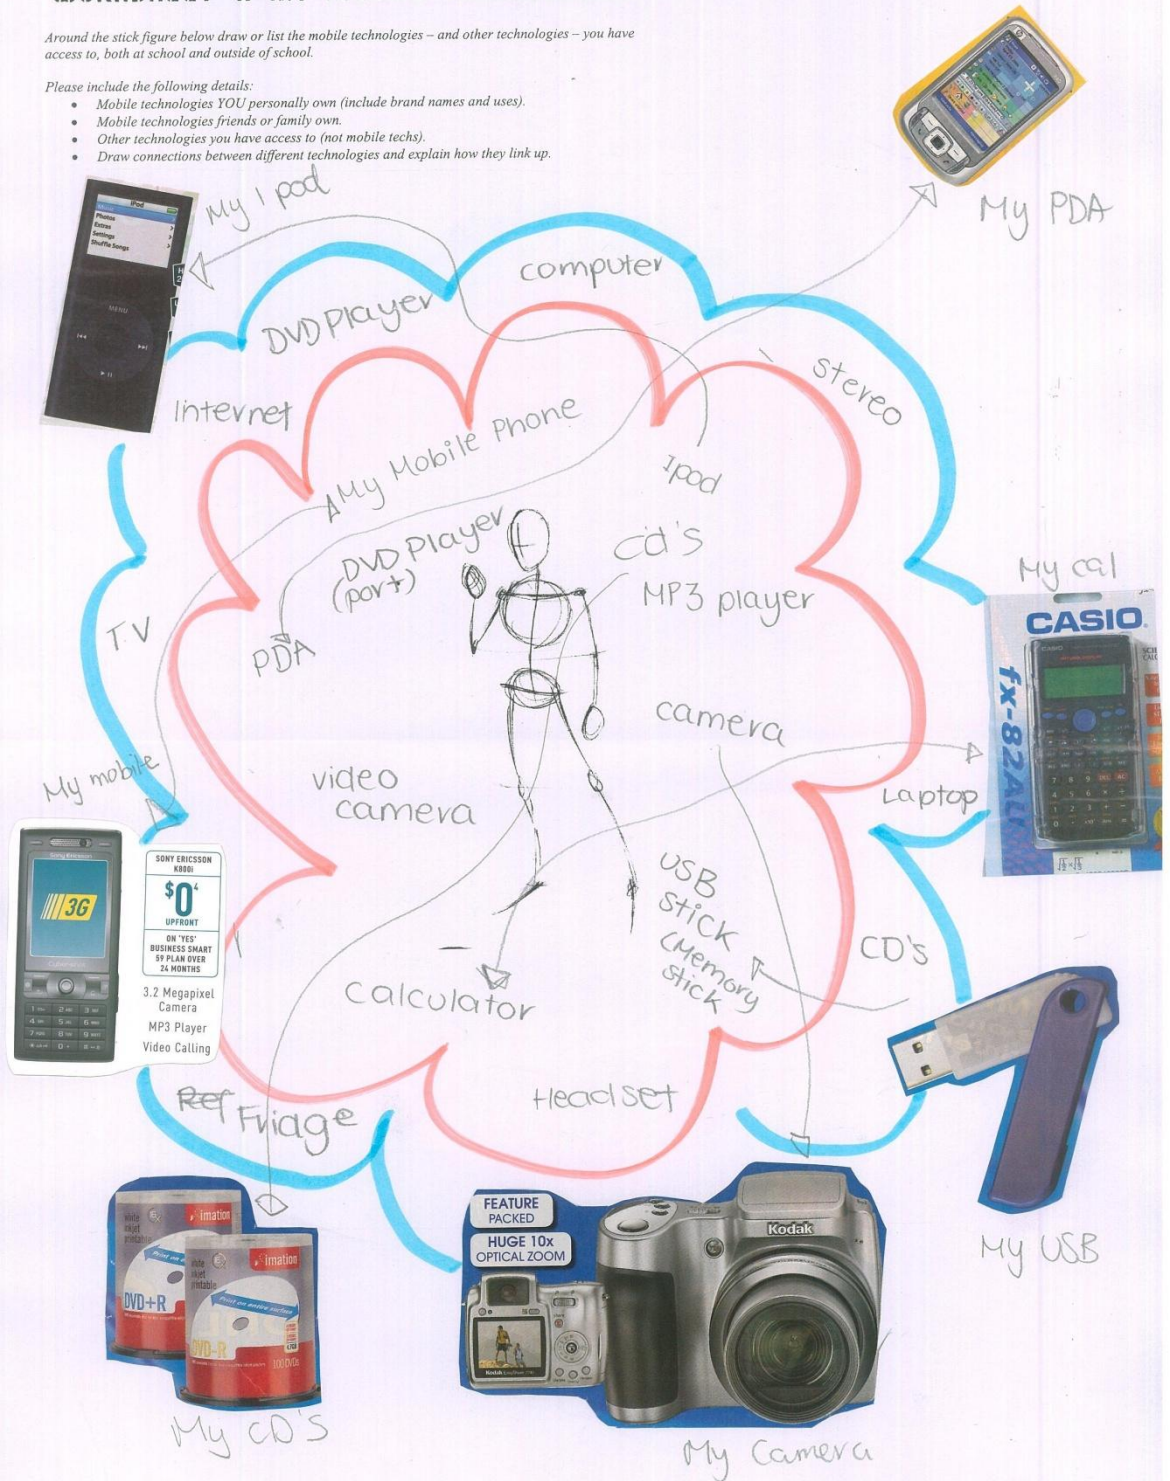 Around the stick figure below draw or list the mobile technologies – and other technologies – you have
access to, both at school and outside of school.
Please include the following details:
• Mobile technologies YOU personally own (include brand names and uses).
• Mobile technologies friends or family own.
• Other technologies you have access to (not mobile techs).
• Draw connections between different technologies and explain how they link up.
My I pod
iPod
Photos
Extras
Settings
Shuffle Songs
MENU
My PDA
computer
DVD Player
stereo
Internet
My Mobile Phone
Ipod
DVD Player
(port)
cd's
MP3 player
My cal
CASIO
fx-82AU
T.V
PDA
camera
My mobile
video
camera
Laptop
Sony Ericsson
3G
SONY ERICSSON
K800i
$0
UPFRONT
ON 'YES'
BUSINESS SMART
59 PLAN OVER
24 MONTHS
3.2 Megapixel
Camera
MP3 Player
Video Calling
USB
stick
(Memory
stick
CD's
calculator
Ref Fridge
Headset
My USB
white
inkjet
printable
imation
DVD+R
white
inkjet
printable
imation
Print on entire surface
DVD-R
100 DVDs
My CD'S
FEATURE
PACKED
HUGE 10x
OPTICAL ZOOM
Kodak
My Camera